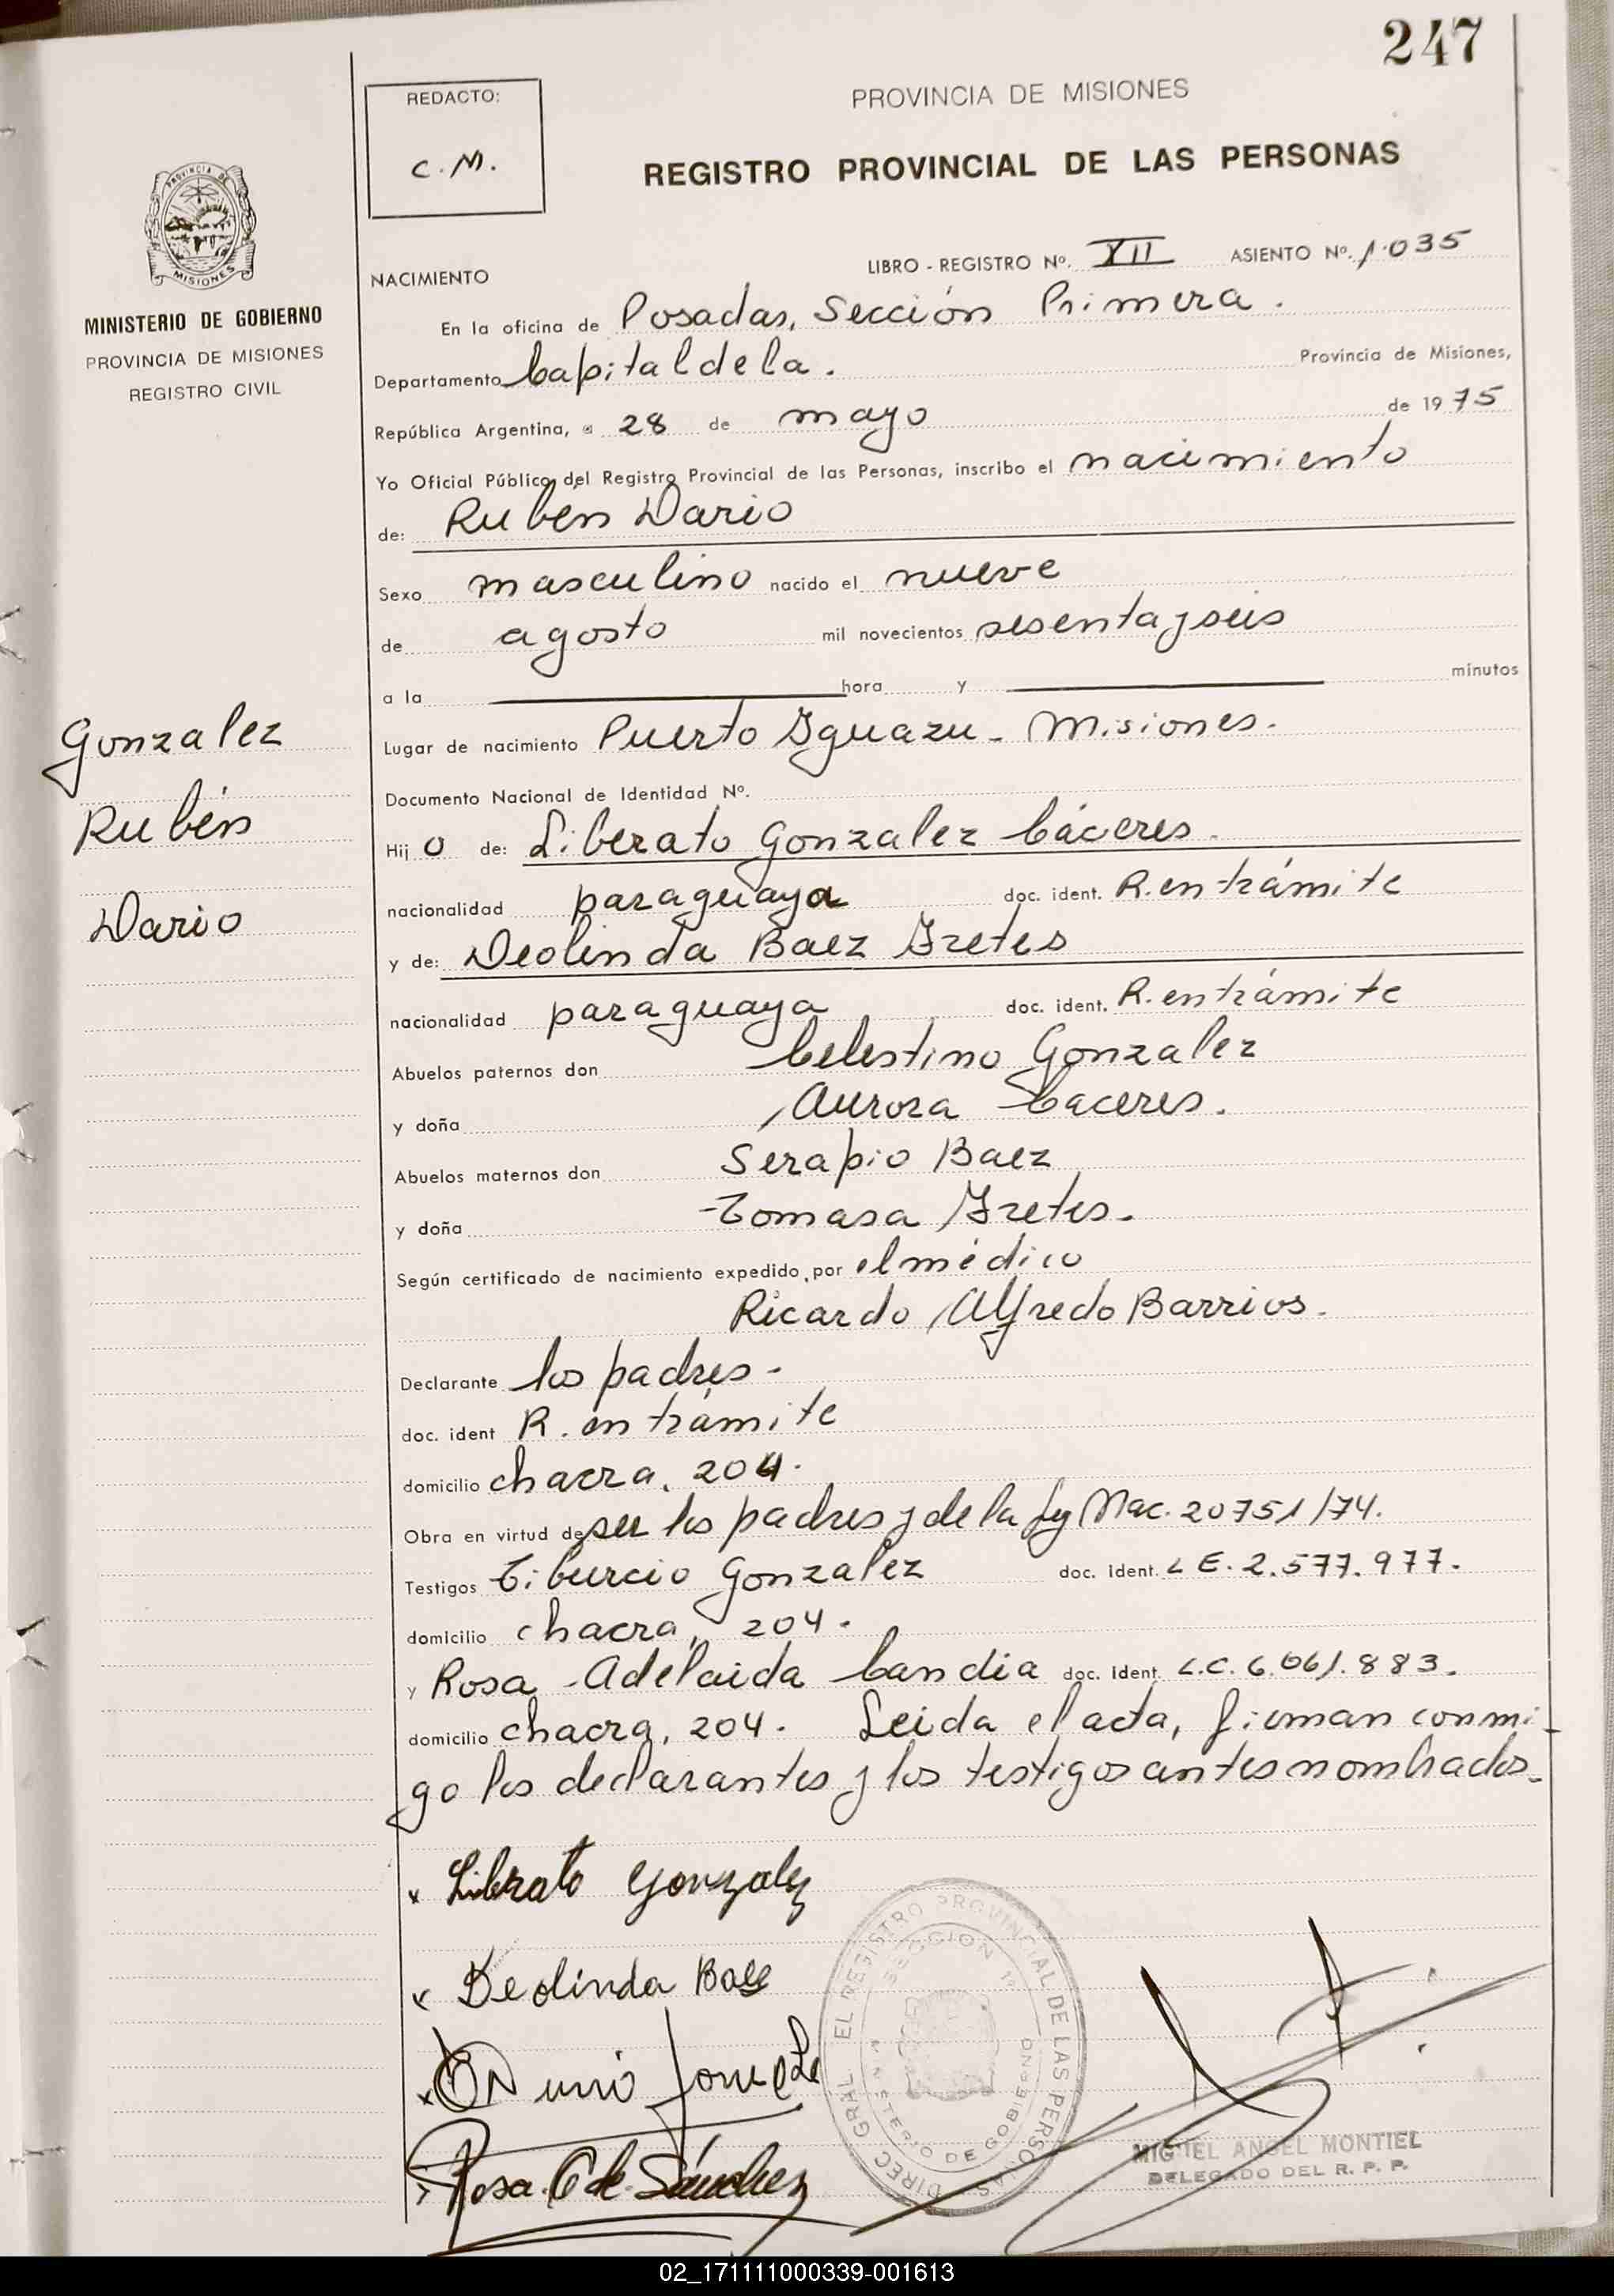 247
REDACTO:
C.M.
PROVINCIA DE MISIONES
REGISTRO PROVINCIAL DE LAS PERSONAS
PROVINCIA DE
MISIONES
MINISTERIO DE GOBIERNO
PROVINCIA DE MISIONES
REGISTRO CIVIL
LIBRO - REGISTRO Nº. XII ASIENTO Nº. 1.035
NACIMIENTO
En la oficina de Posadas, Sección Primera.
Departamento Capital de la. Provincia de Misiones,
República Argentina, a 28 de mayo de 1975
Yo Oficial Público del Registro Provincial de las Personas, inscribo el nacimiento
de: Rubén Dario
Sexo masculino nacido el nueve
de agosto mil novecientos sesenta y seis
a la hora y minutos
Lugar de nacimiento Puerto Iguazu - Misiones.
Documento Nacional de Identidad Nº.
Gonzalez
Rubén
Dario
Hijo de: Liberato Gonzalez Cáceres.
nacionalidad paraguaya doc. ident. R. en trámite
y de: Deolinda Baez Iretes
nacionalidad paraguaya doc. ident. R. en trámite
Abuelos paternos don Celestino Gonzalez
y doña Aurora Caceres.
Abuelos maternos don Serapio Baez
y doña Tomasa Iretes.
Según certificado de nacimiento expedido por el médico
Ricardo Alfredo Barrios.
Declarante los padres -
doc. ident R. en trámite
domicilio chacra, 204.
Obra en virtud de ser los padres y de la Ley Nac. 20751/74.
Testigos Tiburcio Gonzalez doc. ident. L E. 2.577.977.
domicilio chacra, 204.
y Rosa Adelaida Candia doc. ident. L.C. 6.061.883.
domicilio chacra, 204. Leida el acta, firman conmi-
go los declarantes y los testigos antes nombrados.
x Librato Gonzalez
x Deolinda Baez
x
x Rosa C de Sánchez
DIREC GRAL EL REGISTRO PROVINCIAL DE LAS PERSONAS
SECCION 1ª
MINISTERIO DE GOBIERNO
MIGUEL ANGEL MONTIEL
DELEGADO DEL R. P. P.
02_171111000339-001613